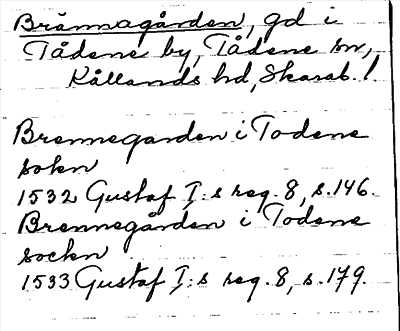 Brännagården, gd i
Tådene by, Tådene sn,
Kållands hd, Skarab. l
Brennegarden i Todene
sokn
1532 Gustaf I:s reg. 8, s. 146.
Brennegården i Todene
sockn
1533 Gustaf I:s reg. 8, s. 179.